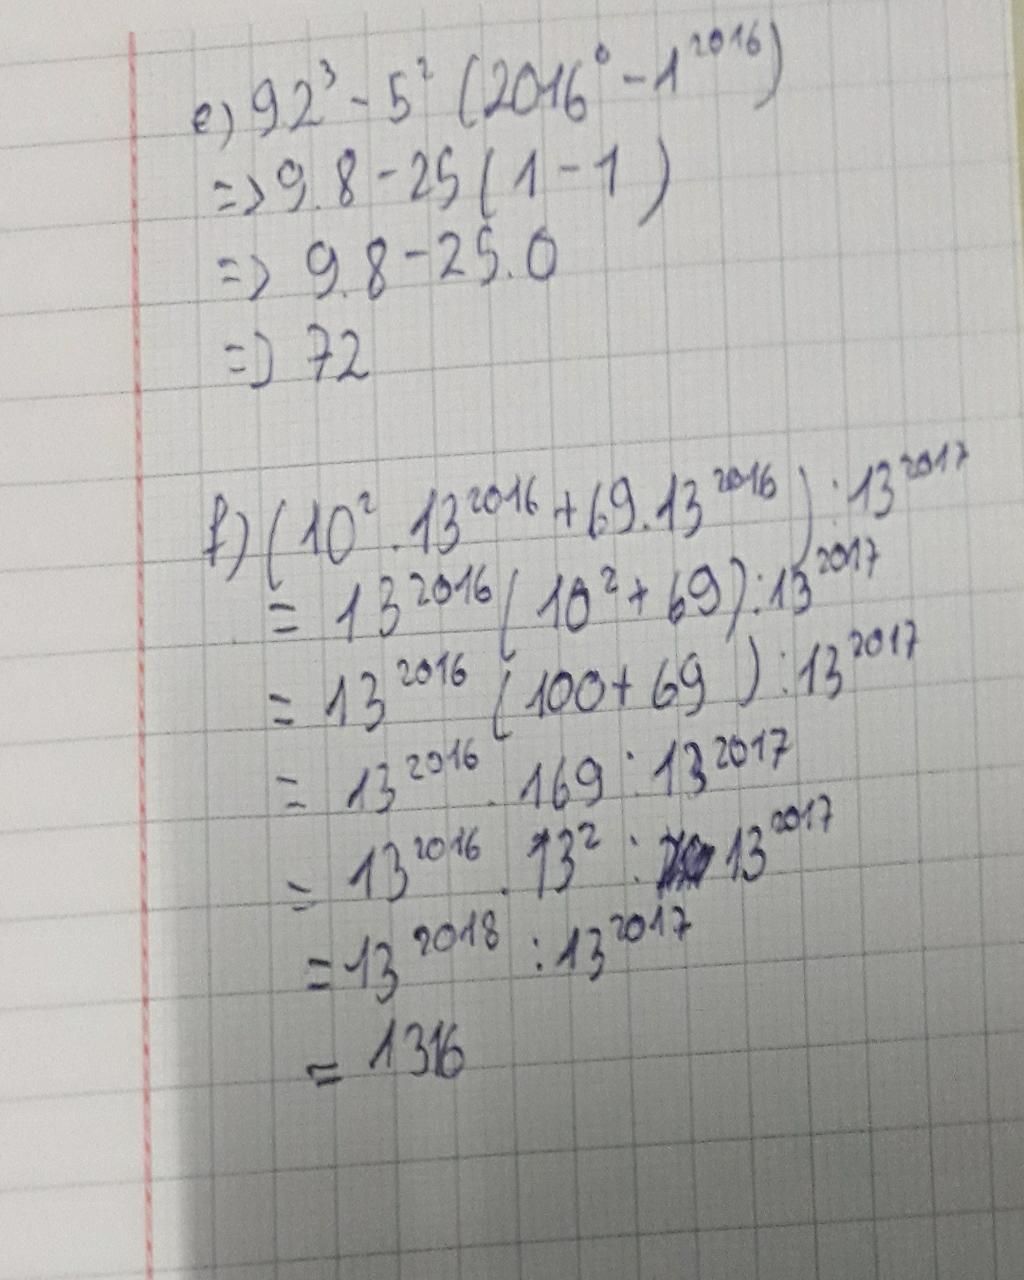 e) 92³ - 5² (2016⁰ - 1²⁰¹⁶)
=> 9.8 - 25 ( 1 - 1 )
=> 9.8 - 25.0
=> 72
f) (10² . 13²⁰¹⁶ + 69.13²⁰¹⁶) : 13²⁰¹⁷
= 13²⁰¹⁶ (10² + 69) : 13²⁰¹⁷
= 13²⁰¹⁶ (100 + 69) : 13²⁰¹⁷
= 13²⁰¹⁶ . 169 : 13²⁰¹⁷
= 13²⁰¹⁶ . 13² : 13²⁰¹⁷
= 13²⁰¹⁸ : 13²⁰¹⁷
= 1316